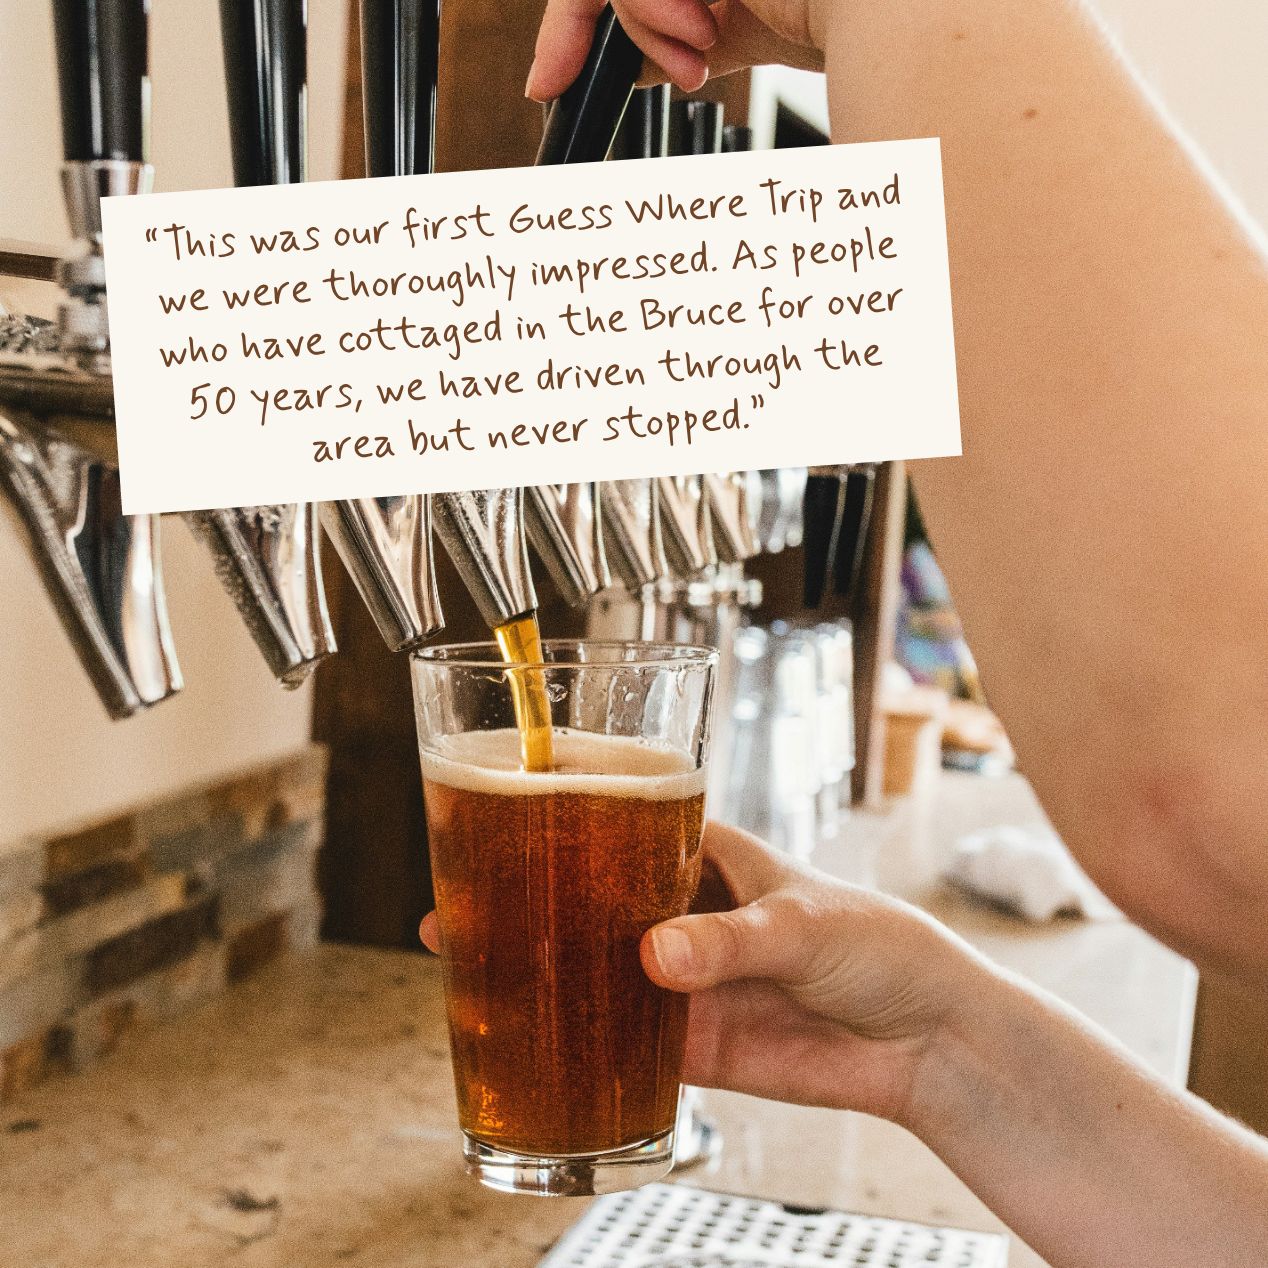 “This was our first Guess Where Trip and
we were thoroughly impressed. As people
who have cottaged in the Bruce for over
50 years, we have driven through the
area but never stopped.”